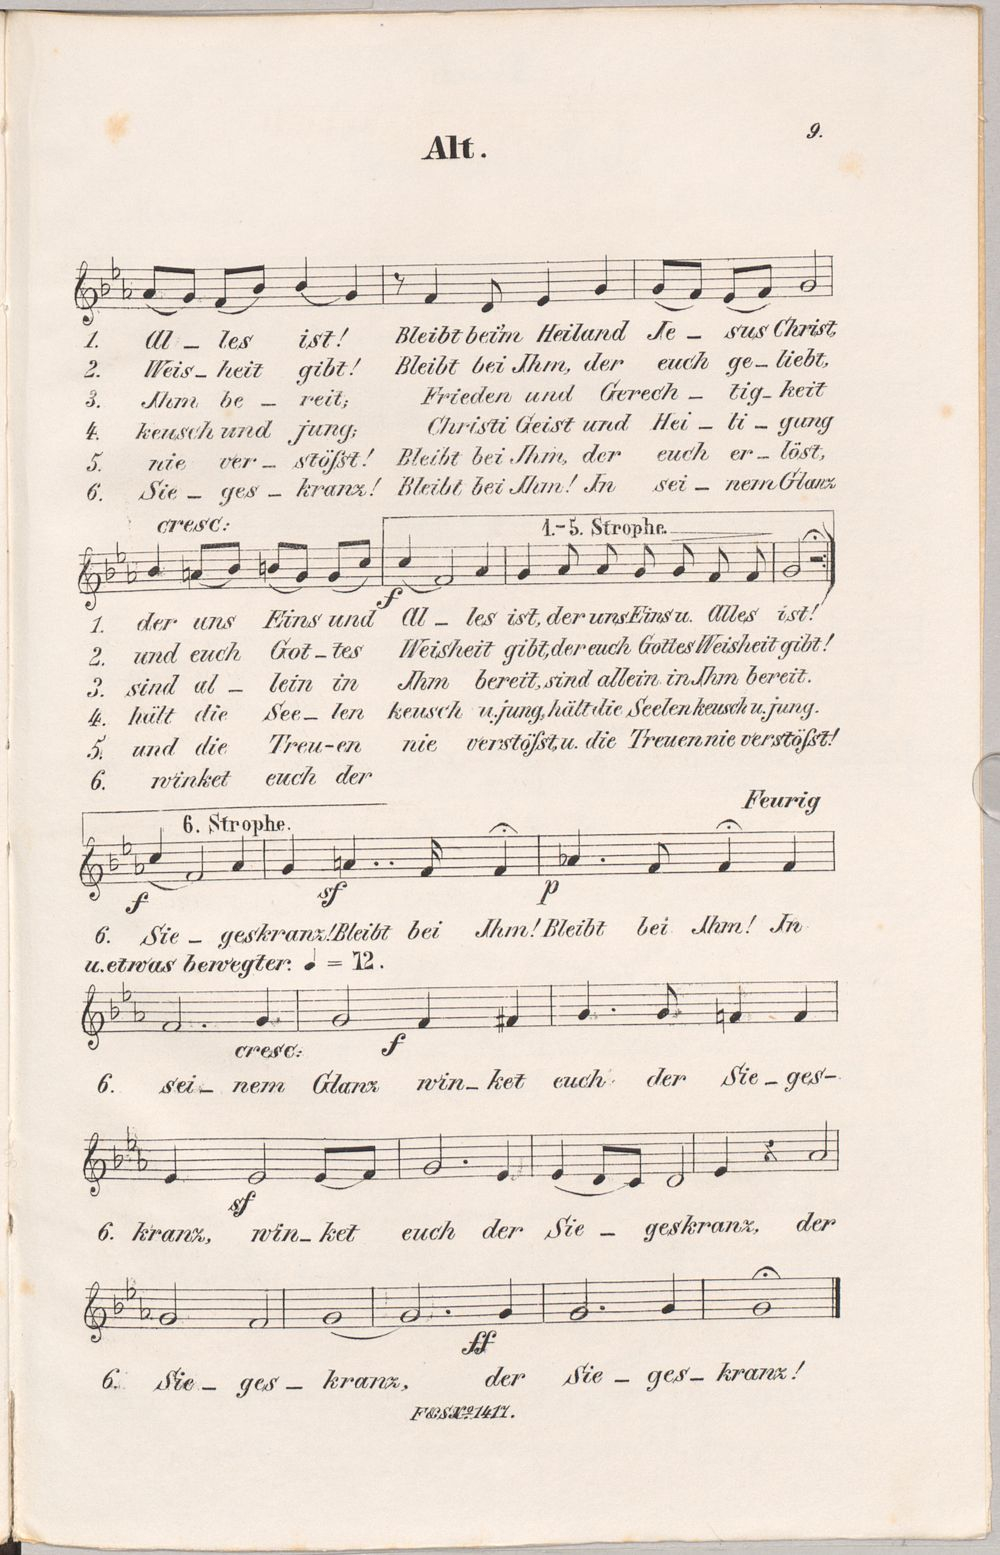 9.
Alt.
1. Al – les ist! Bleibt bei'm Heiland Je – sus Christ,
2. Weis – heit gibt! Bleibt bei Ihm, der euch ge – liebt,
3. Ihm be – reit; Frieden und Gerech – tig – keit
4. keusch und jung; Christi Geist und Hei – li – gung
5. nie ver – stößt! Bleibt bei Ihm, der euch er – löst,
6. Sie – ges – kranz! Bleibt bei Ihm! In sei – nem Glanz
cresc: 1.–5. Strophe.
f
1. der uns Eins und Al – les ist, der uns Eins u. Alles ist!
2. und euch Got – tes Weisheit gibt, der euch Gottes Weisheit gibt!
3. sind al – lein in Ihm bereit, sind allein in Ihm bereit.
4. hält die See – len keusch u. jung, hält die Seelen keusch u. jung.
5. und die Treu – en nie verstößt, u. die Treuen nie verstößt!
6. winket euch der
Feurig
6. Strophe.
f sf p
6. Sie – geskranz! Bleibt bei Ihm! Bleibt bei Ihm! In
u. etwas bewegter. ♩ = 72.
cresc: f
6. sei – nem Glanz win – ket euch der Sie – ges –
sf
6. kranz, win – ket euch der Sie – geskranz, der
ff
6. Sie – ges – kranz, der Sie – ges – kranz!
F&S No. 1417.